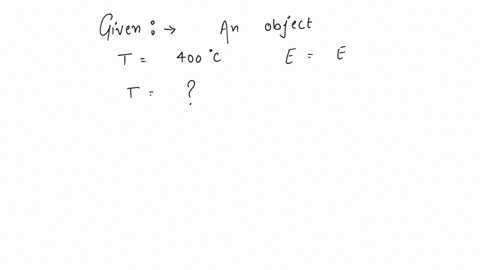 Given :→ An object
T = 400 °C E = E
T = ?